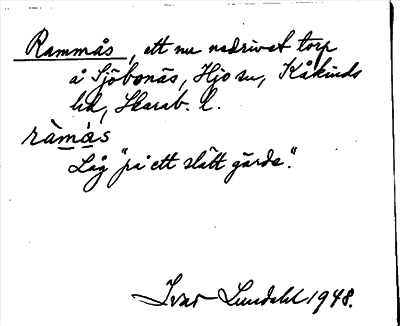 Rammås, ett nu nedrivet torp
å Sjöbonäs, Hjo su, Kåkinds
hd, Skarab. l.
ràmás
Låg "på ett slätt gärde".
Ivar Lundahl 1948.